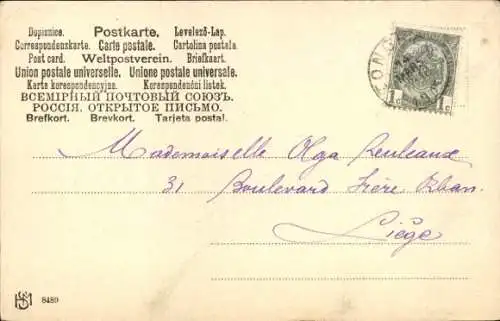 Dopisnice. Postkarte. Levelező-Lap.
Correspondenzkarte. Carte postale. Cartolina postala.
Post card. Weltpostverein. Briefkaart.
Union postale universelle. Unione postale universale.
Karta korespondencyjna. Korespondenčni listek.
ВСЕМІРНЫЙ ПОЧТОВЫЙ СОЮЗЪ.
РОССІЯ. ОТКРЫТОЕ ПИСЬМО.
Brefkort. Brevkort. Tarjeta postal.
1c 1c
Mademoiselle Olga
31 Boulevard Frère Orban
Liége
8489